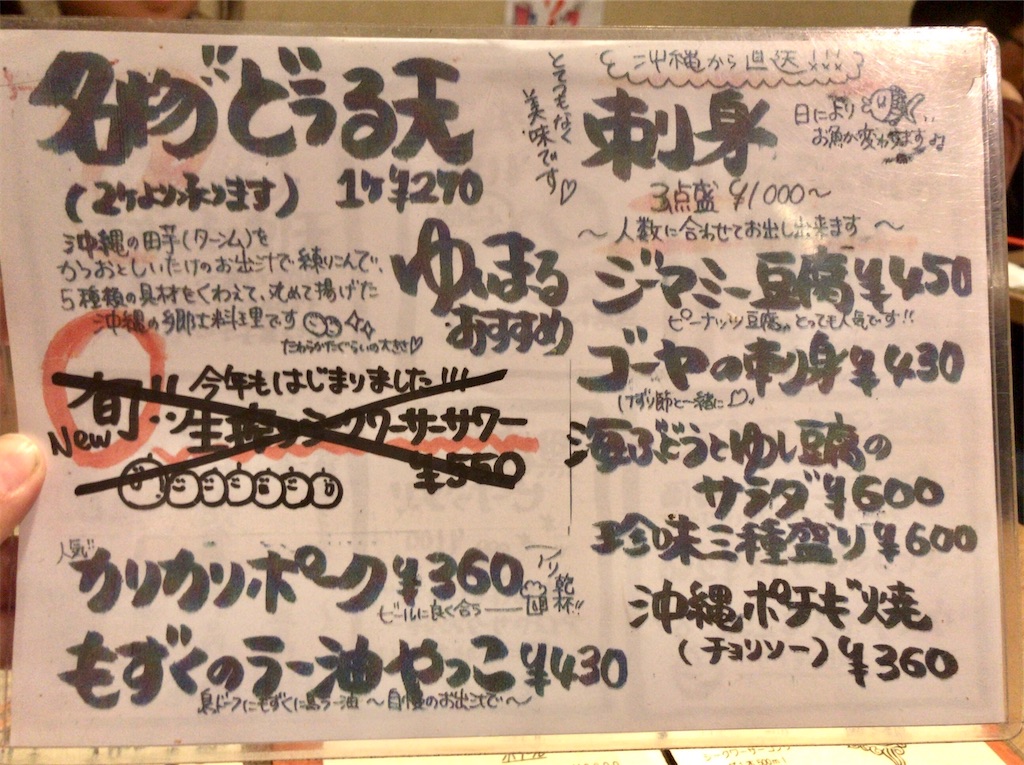 名物"どぅる天
(2ケより承ります) 1ケ¥270
とてもなく
美味です♡
沖縄の田芋(ターンム)を
かつおとしいたけのお出汁で練りこんで、
5種類の具材をくわえて、丸めて揚げた
沖縄の郷土料理です
たわらかたぐらいの大きさ♡
ゆんまる
おすすめ
旬!! 今年もはじまりました!!!
New 生搾シークワーサーサワー
¥550
人気!!
カリカリポーク¥360
ビールに良く合う
アリ乾杯!!
もずくのラー油やっこ¥430
島ドーフにもずくに島ラー油 〜自慢のお出汁で〜
沖縄から直送!!!
刺身
日により
お魚が変わりますよ
3点盛 ¥1000〜
〜人数に合わせてお出し出来ます〜
ジーマミー豆腐¥450
ピーナッツ豆腐。とっても人気です!!
ゴーヤの刺身¥430
けずり節と一緒に♡
海ぶどうとゆし豆腐の
サラダ¥600
珍味三種盛り¥600
沖縄ポチギ焼
(チョリソー) ¥360